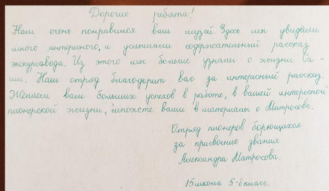 Дорогие ребята!
Нам очень понравился ваш музей. Здесь мы увидели
много интересного, и услышали содержательный рассказ
экскурсовода. Из этого мы больше узнали о жизни
Наш отряд благодарит вас за интересный рассказ.
Желаем вам больших успехов в работе, в вашей интересной
пионерской жизни, ваши материалы о Матросове.
Отряд пионеров борющихся
за присвоение звания
Александра Матросова.
15 школа 5